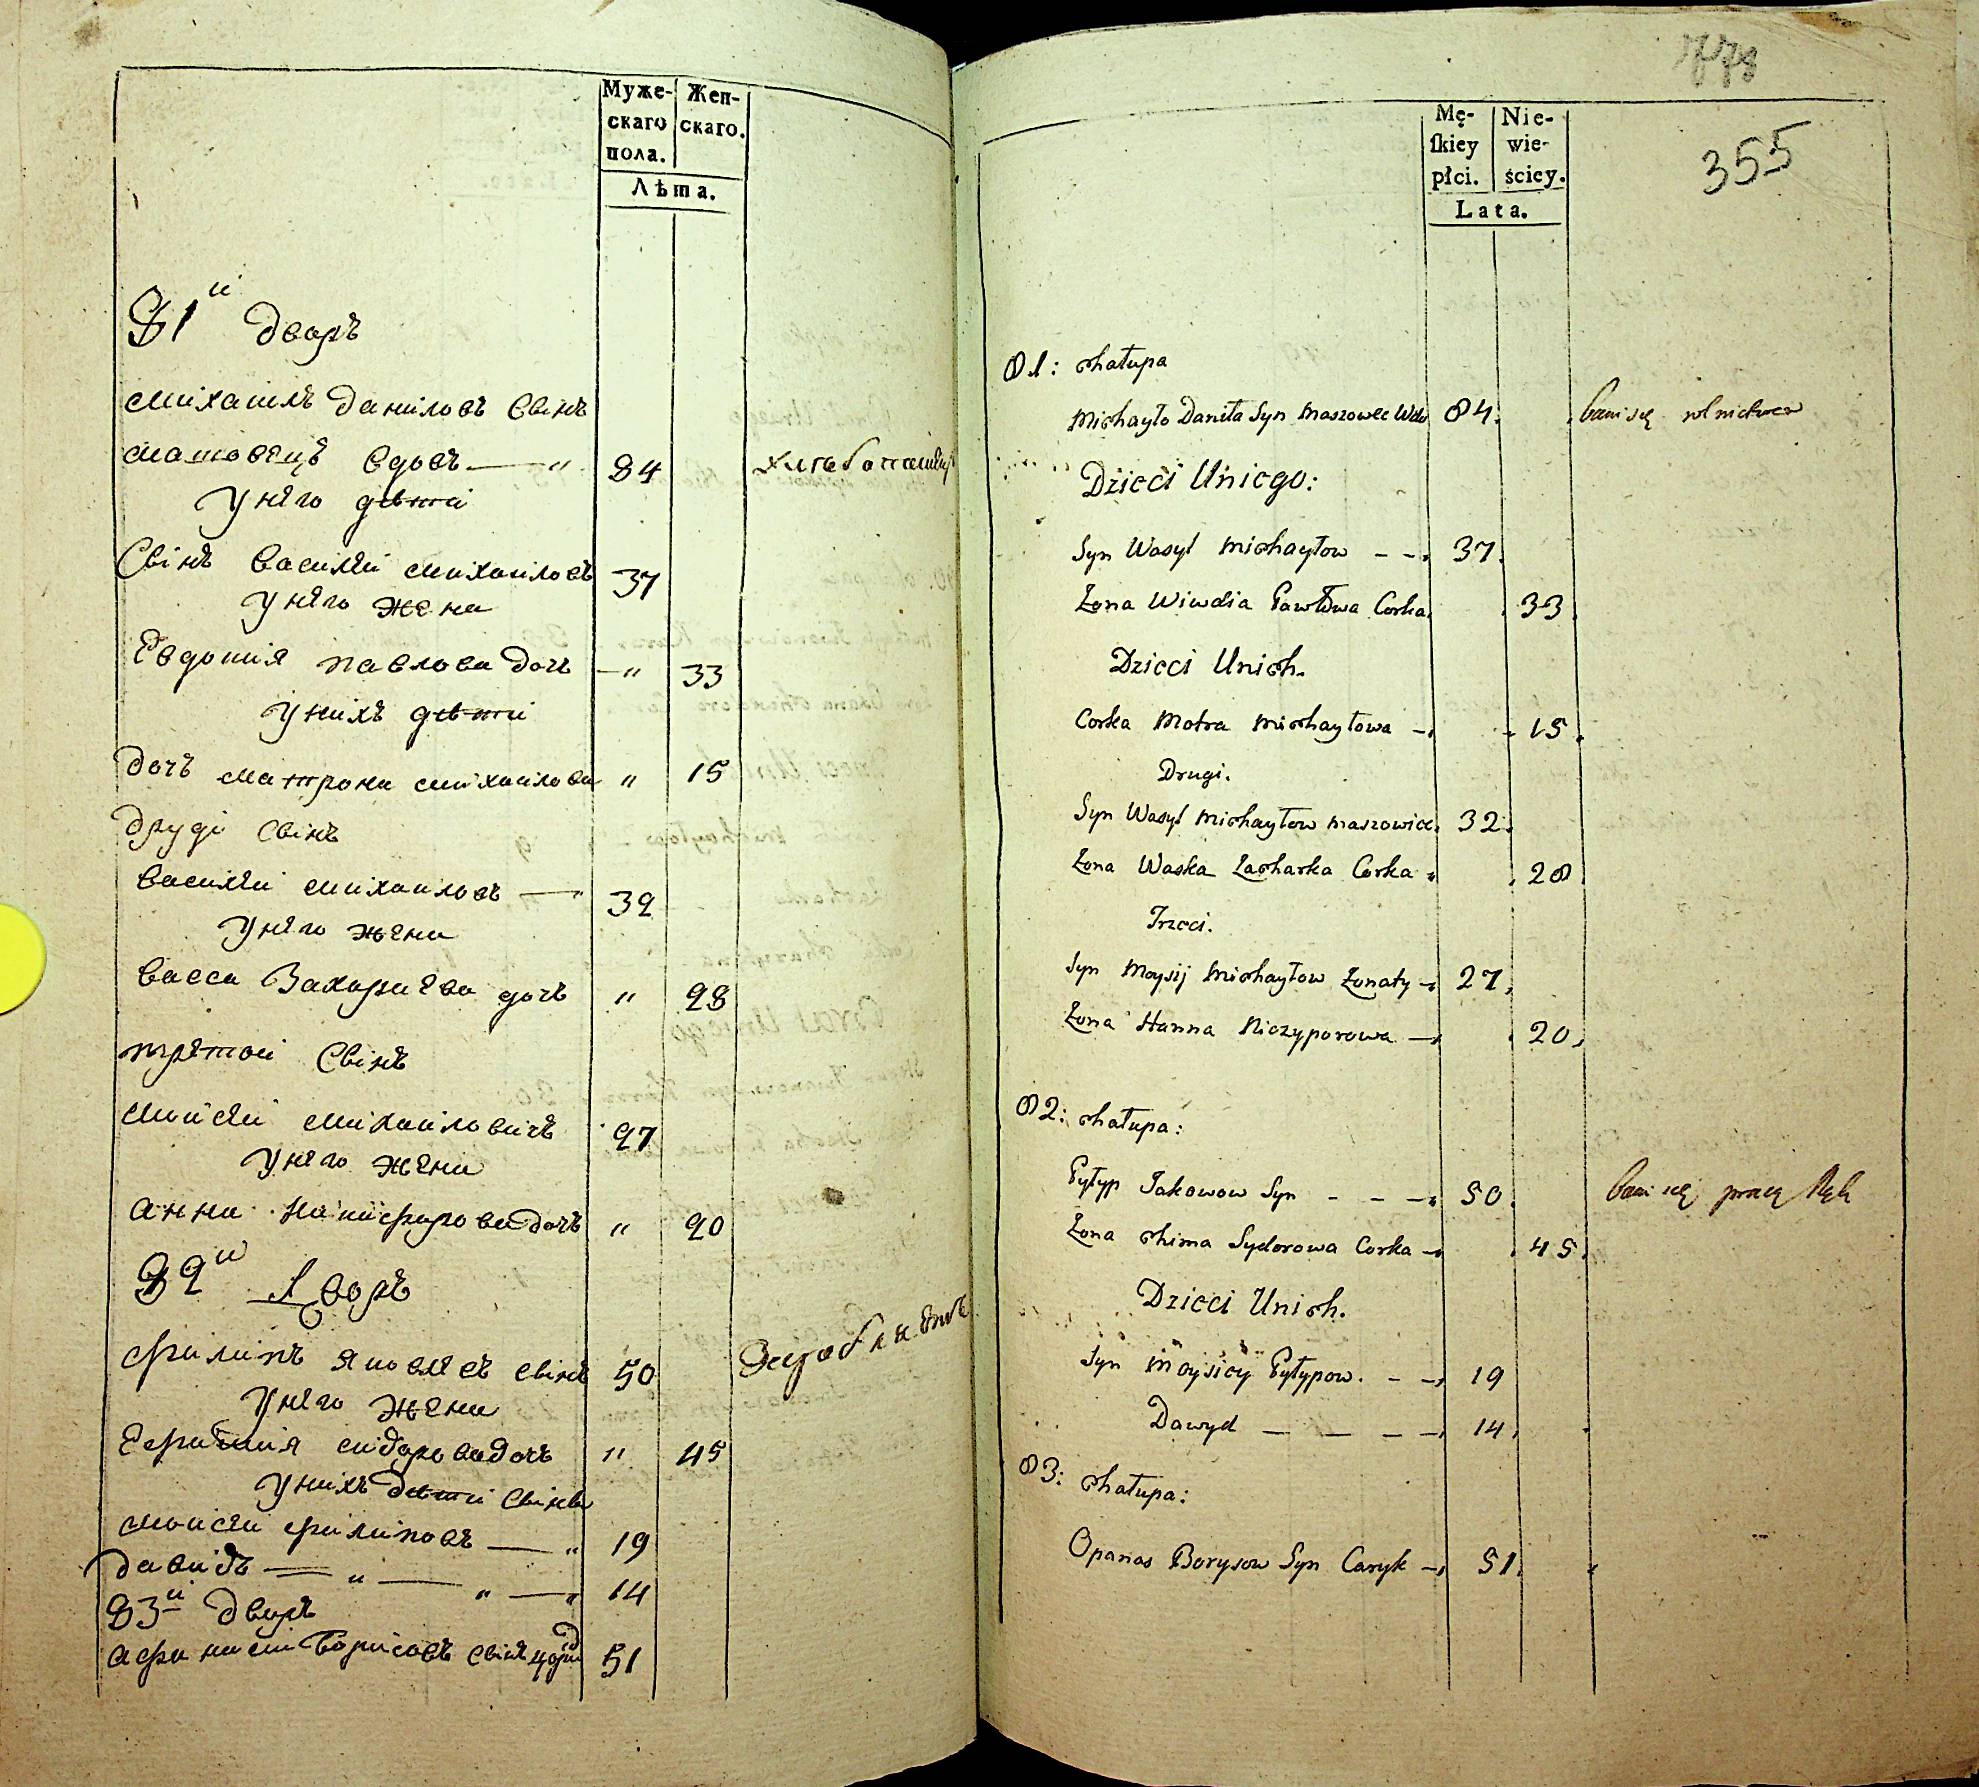 Муже-
скаго
пола.
Жен-
скаго.
Лѣта.
81й дворъ
михаилъ даниловъ свінъ
матовецъ вдовъ — " 84 хлебопашец
у него дѣти
Свінъ василѣй михаиловъ 37
у него жена
Евдокия павлова дочь — " 33
у нихъ дѣти
дочь матрона михаилова " 15
други свінъ
василѣй михаиловъ — " 32
у него жена
васса Захариева дочь " 28
третой свінъ
мойсѣй михаиловичъ 27
у него жена
анна никифорова дочь " 20
82й Дворъ
филипъ яковлевъ свінъ 50
у него жена
Ефимия сидорова дочь " 45
у нихъ дѣти свіны
моисѣй филиповъ — " 19
давидъ — " — " — " 14
83й дворъ
афанасій борисовъ свінъ 51
778
355
Mę-
skiey
płci.
Nie-
wie-
ściey.
Lata.
81: chałupa
Michayło Daniła Syn Maszowec Wdo 84. bawi się rolnictwem
Dzieci Uniego:
Syn Wasyl Michayłow - - 37.
Żona Wiwdia Pawłowa Corka. 33.
Dzieci Unich.
Corka Motra Michayłowa - 15.
Drugi.
Syn Wasyl Michayłow Maszowiec. 32.
Żona Waska Zacharka Corka 28.
Trzeci.
Syn Moysij Michayłow Żonaty - 27.
Żona Hanna Niczyporowa - 20.
82: chałupa:
Pyłyp Jakowow Syn - - - 50. bawi się pracą Rąk
Żona Chima Sydorowa Corka - 45.
Dzieci Unich.
Syn Moysiey Pyłypow. - - 19
Dawyd - - - - 14.
83: chałupa:
Opanas Borysow Syn Caryk - 51.